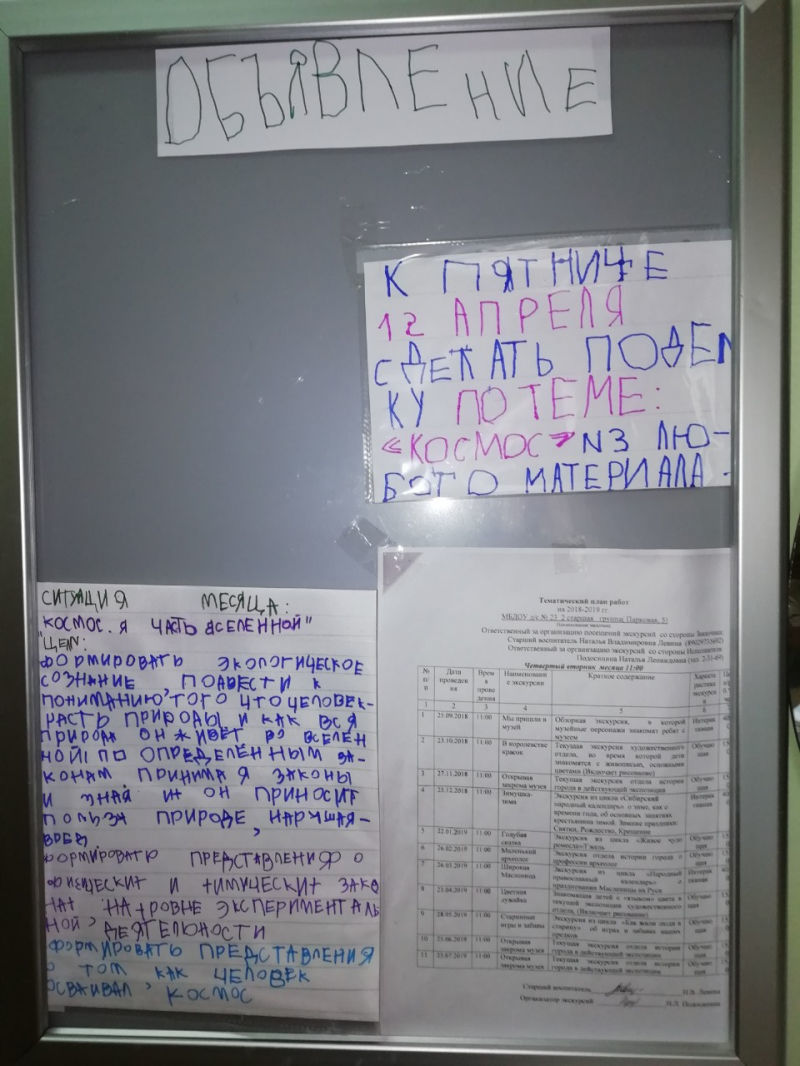 ОБЪЯВЛЕНИЕ
К ПЯТНИЦЕ
12 АПРЕЛЯ
СДЕЛАТЬ ПОДЕЛ
КУ ПО ТЕМЕ:
«КОСМОС» ИЗ ЛЮ-
БОГО МАТЕРИАЛА.
СИТУАЦИЯ МЕСЯЦА:
КОСМОС. Я ЧАСТЬ ВСЕЛЕННОЙ"
"ЦЕЛ:
ФОРМИРОВАТЬ ЭКОЛОГИЧЕСКОЕ
СОЗНАНИЕ ПОДВЕСТИ К
ПОНИМАНИЮ, ТОГО ЧТО ЧЕЛОВЕК-
ЧАСТЬ ПРИРОДЫ И КАК ВСЯ
ПРИРОДА ОН ЖИВЕТ ВО ВСЕЛЕН
НОЙ ПО ОПРЕДЕЛЕННЫМ ЗА-
КОНАМ ПРИНИМАЯ ЗАКОНЫ
И ЗНАЯ ИХ ОН ПРИНОСИТ
ПОЛЬЗУ ПРИРОДЕ, НАРУШАЯ-
ВРЕД.
ФОРМИРОВАТЬ ПРЕДСТАВЛЕНИЯ О
ФИЗИЧЕСКИХ И ХИМИЧЕСКИХ ЗАКО
НАХ НА УРОВНЕ ЭКСПЕРИМЕНТАЛЬ
НОЙ ДЕЯТЕЛЬНОСТИ
ФОРМИРОВАТЬ ПРЕДСТАВЛЕНИЯ
О ТОМ КАК ЧЕЛОВЕК
ОСВАИВАЛ КОСМОС
Тематический план работ
на 2018-2019 гг.
МБДОУ д/с № 23 2 старшая группа( Парковая, 5)
Ответственный за организацию посещений экскурсий со стороны Заказчика
Старший воспитатель Наталья Владимировна Левина
Ответственный за организацию экскурсий со стороны Исполнителя
Наталья Леонидовна
Четвертый вторник месяца 11:00
№ п/п Дата проведения Время проведения Наименование экскурсии Краткое содержание
1 2 3 4 5 6
1 25.09.2018 11:00 Мы пришли в музей Обзорная экскурсия, в которой музейные персонажи знакомят ребят с музеем
2 23.10.2018 11:00 В королевстве красок Текущая экскурсия художественного отдела, во время которой дети знакомятся с живописью, основными цветами (Включает рисование)
3 27.11.2018 11:00 Открывая закрома музея Текущая экскурсия отдела истории города в действующей экспозиции
4 25.12.2018 11:00 Зимушка-зима Экскурсия из цикла «Сибирский народный календарь» о зиме, как о времени года, об основных занятиях крестьянина зимой. Зимние праздники: Святки, Рождество, Крещение
5 22.01.2019 11:00 Голубая сказка Экскурсия из цикла «Живое чудо ремесла» Гжель
6 26.02.2019 11:00 Маленький археолог Экскурсия отдела истории города о профессии археолог
7 26.03.2019 11:00 Широкая Масленица Экскурсия из цикла «Народный православный календарь» о праздновании Масленицы на Руси
8 23.04.2019 11:00 Цветная лужайка
9 28.05.2019 11:00 Старинные игры и забавы Экскурсия из цикла «Как жили люди в старину» об играх и забавах наших предков
10 25.06.2019 11:00 Открывая закрома музея Текущая экскурсия отдела истории города в действующей экспозиции
11 23.07.2019 11:00 Открывая закрома музея Текущая экскурсия отдела истории города в действующей экспозиции
Старший воспитатель Н.В. Левина
Организатор экскурсий